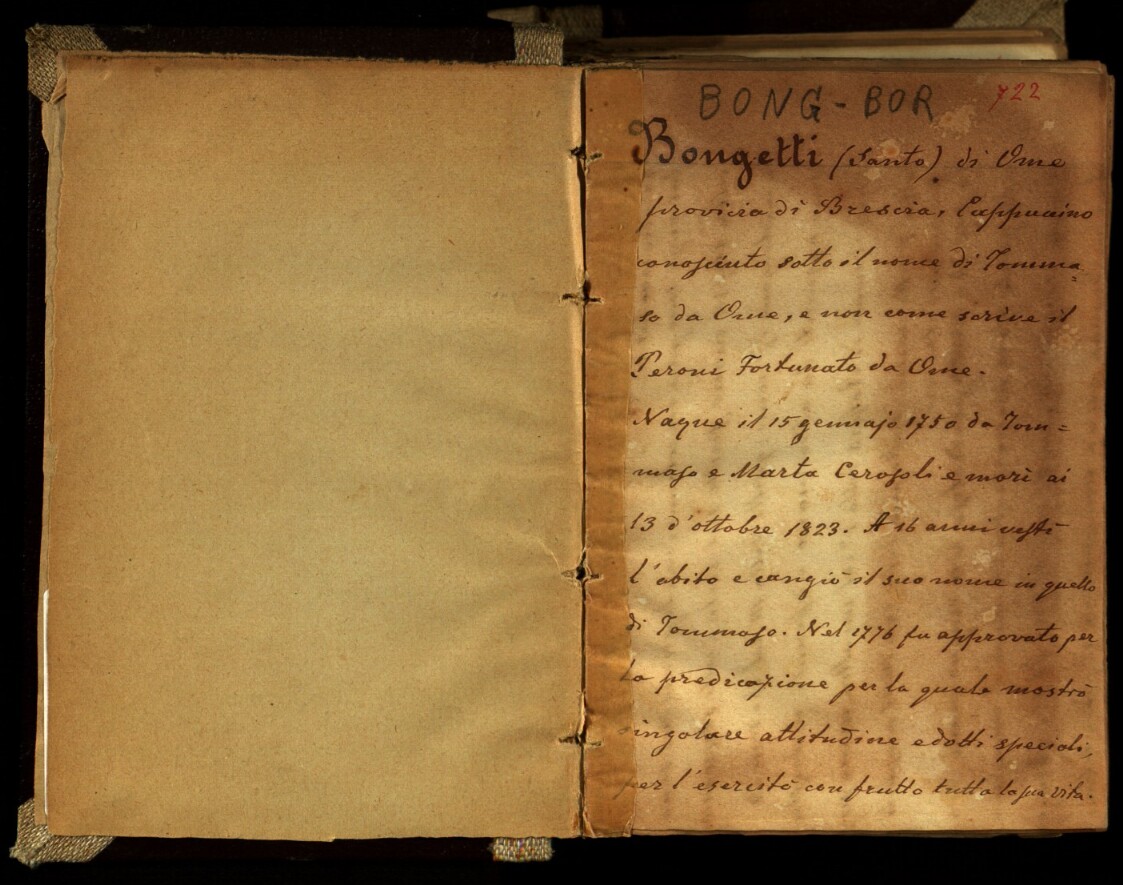 BONG-BOR 722
Bongetti (Santo) di Ome
provicia di Brescia, Cappuccino
conosciuto sotto il nome di Tomma=
so da Ome, e non come scrive il
Peroni Fortunato da Ome.
Naque il 15 gennajo 1750 da Tom=
maso e Marta Cerosoli e morì ai
13 d'ottobre 1823. A 16 anni vestì
l'abito e cangiò il suo nome in quello
di Tommaso. Nel 1776 fu approvato per
la predicazione per la quale mostrò
singolare attitudine e dotti speciali,
per l'esercitò con frutto tutta la sua vita.